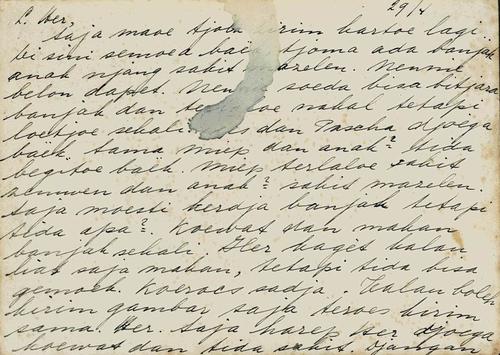 29/4
L. Her,
Saja maoe tjoba kirim kartoe lagi
bi sini semoea baik tjoma ada banjak
anak njang sakit mazelen. Nennie
belon dapet. Nennie soeda bisa bitjara
banjak dan nakal tetapi
loetjoe sekali dan Pascha djoega
baik. Sama Miep dan anak? tida
begitoe baik. Miep terlaloe sakit
zenuwen dan anak? sakit mazelen.
Saja moesti kerdja banjak tetapi
tida apa?. Koewat dan makan
banjak sekali. Her kaget kalau
liat saja makan, tetapi tida bisa
gemoek. Koeroes sadja. Kalau boleh
kirim gambar saja teroes kirim
sama Her. Saja harep Her djoega
koewat dan tida sakit. Djangan